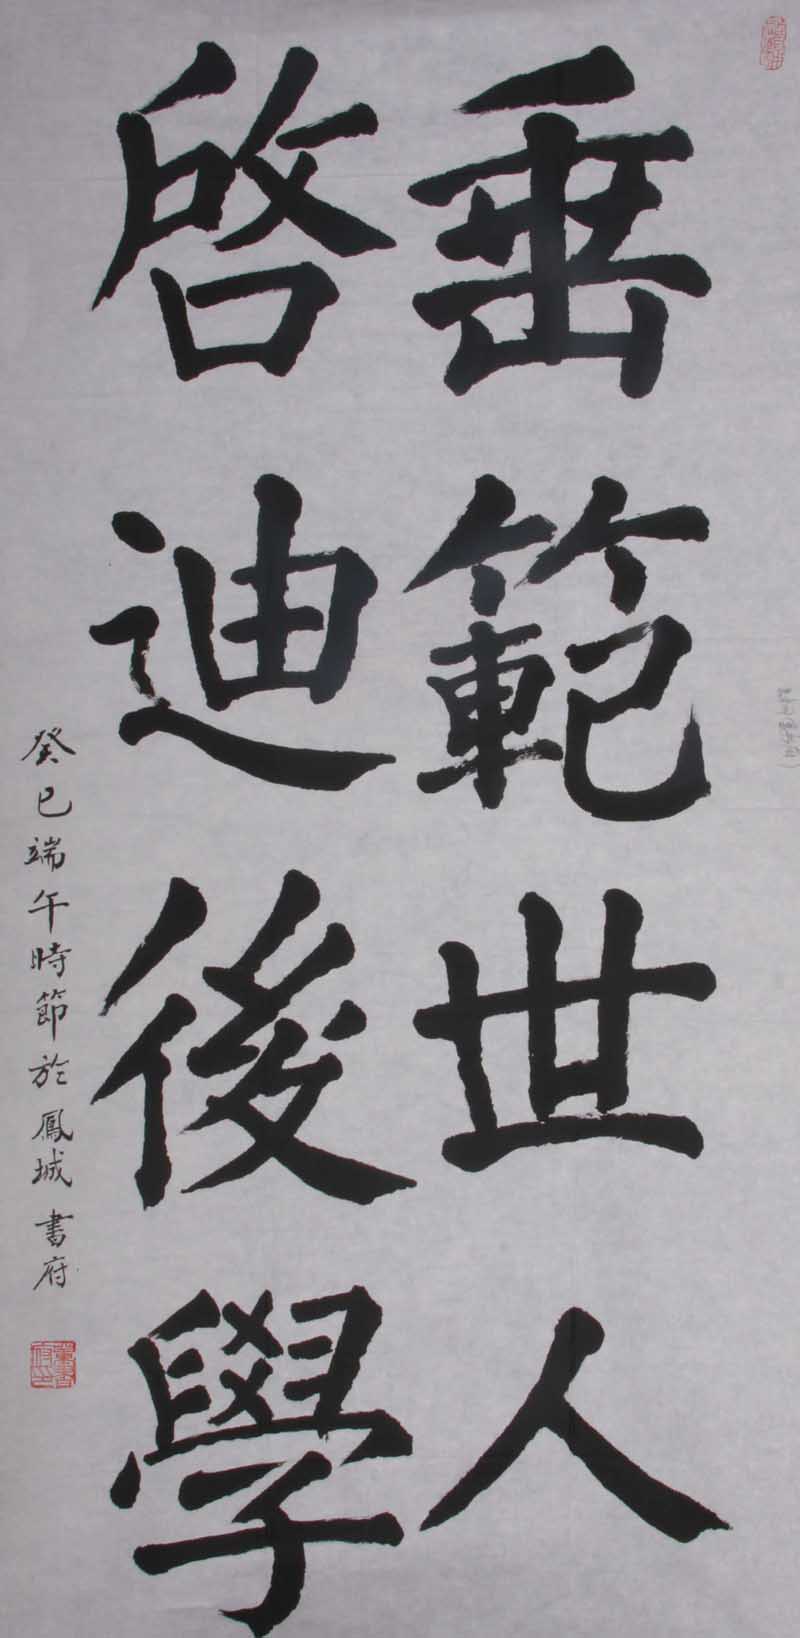 垂範世人
啓迪後學
癸巳端午時節於鳳城書府